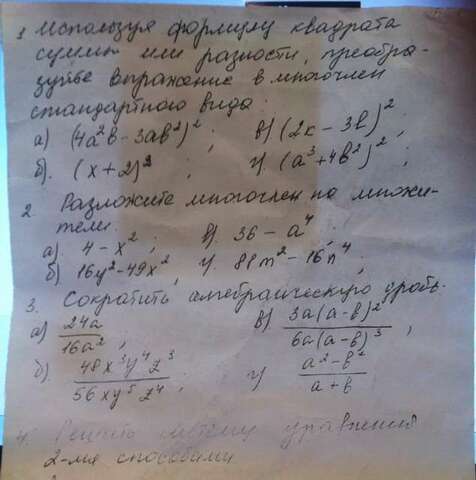 1 Используя формулу квадрата
суммы или разности, преобра-
зуйте выражение в многочлен
стандартного вида:
а) (4a²b - 3ab²)² ; в) (2k - 3b)² ;
б). (x + 2)² ; г) (a³ + 4b²)² ;
2 Разложите многочлен на множи-
тели.
а) 4 - x² ; в) 36 - a⁴ ;
б) 16y² - 49x² , г) 81m² - 16n⁴ ;
3. Сократить алгебраическую дробь.
а) 24a/16a² ; в) 3a(a-b)²/6a(a-b)³ ;
б). 48x³y⁴z³/56xy⁵z⁴ ; г) a²-b²/a+b
4. Решить систему уравнения
2-мя способами